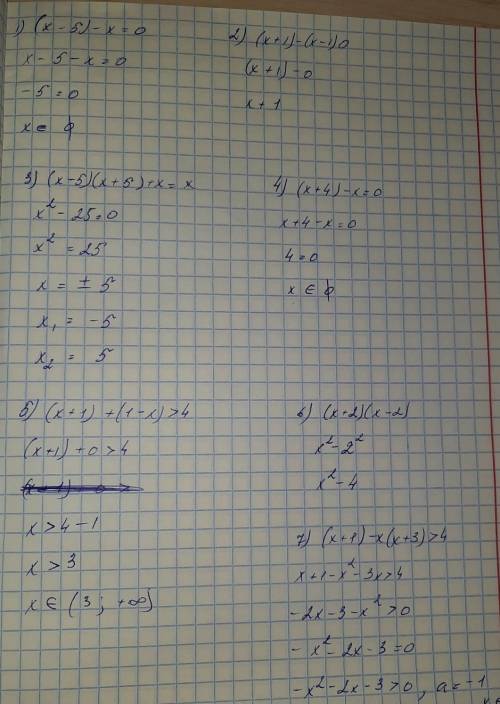 1) (x-5)-x=0
x-5-x=0
-5=0
x∈ ф
2) (x+1)-(x-1)0
(x+1)-0
x+1
3) (x-5)(x+5)+x=x
x²-25=0
x²=25
x=±5
x₁=-5
x₂=5
4) (x+4)-x=0
x+4-x=0
4=0
x∈ ф
5) (x+1)+(1-x)>4
(x+1)+0>4
x>4-1
x>3
x∈(3; +∞)
6) (x+2)(x-2)
x²-2²
x²-4
7) (x+1)-x(x+3)>4
x+1-x²-3x>4
-2x-3-x²>0
-x²-2x-3=0
-x²-2x-3>0, a=-1